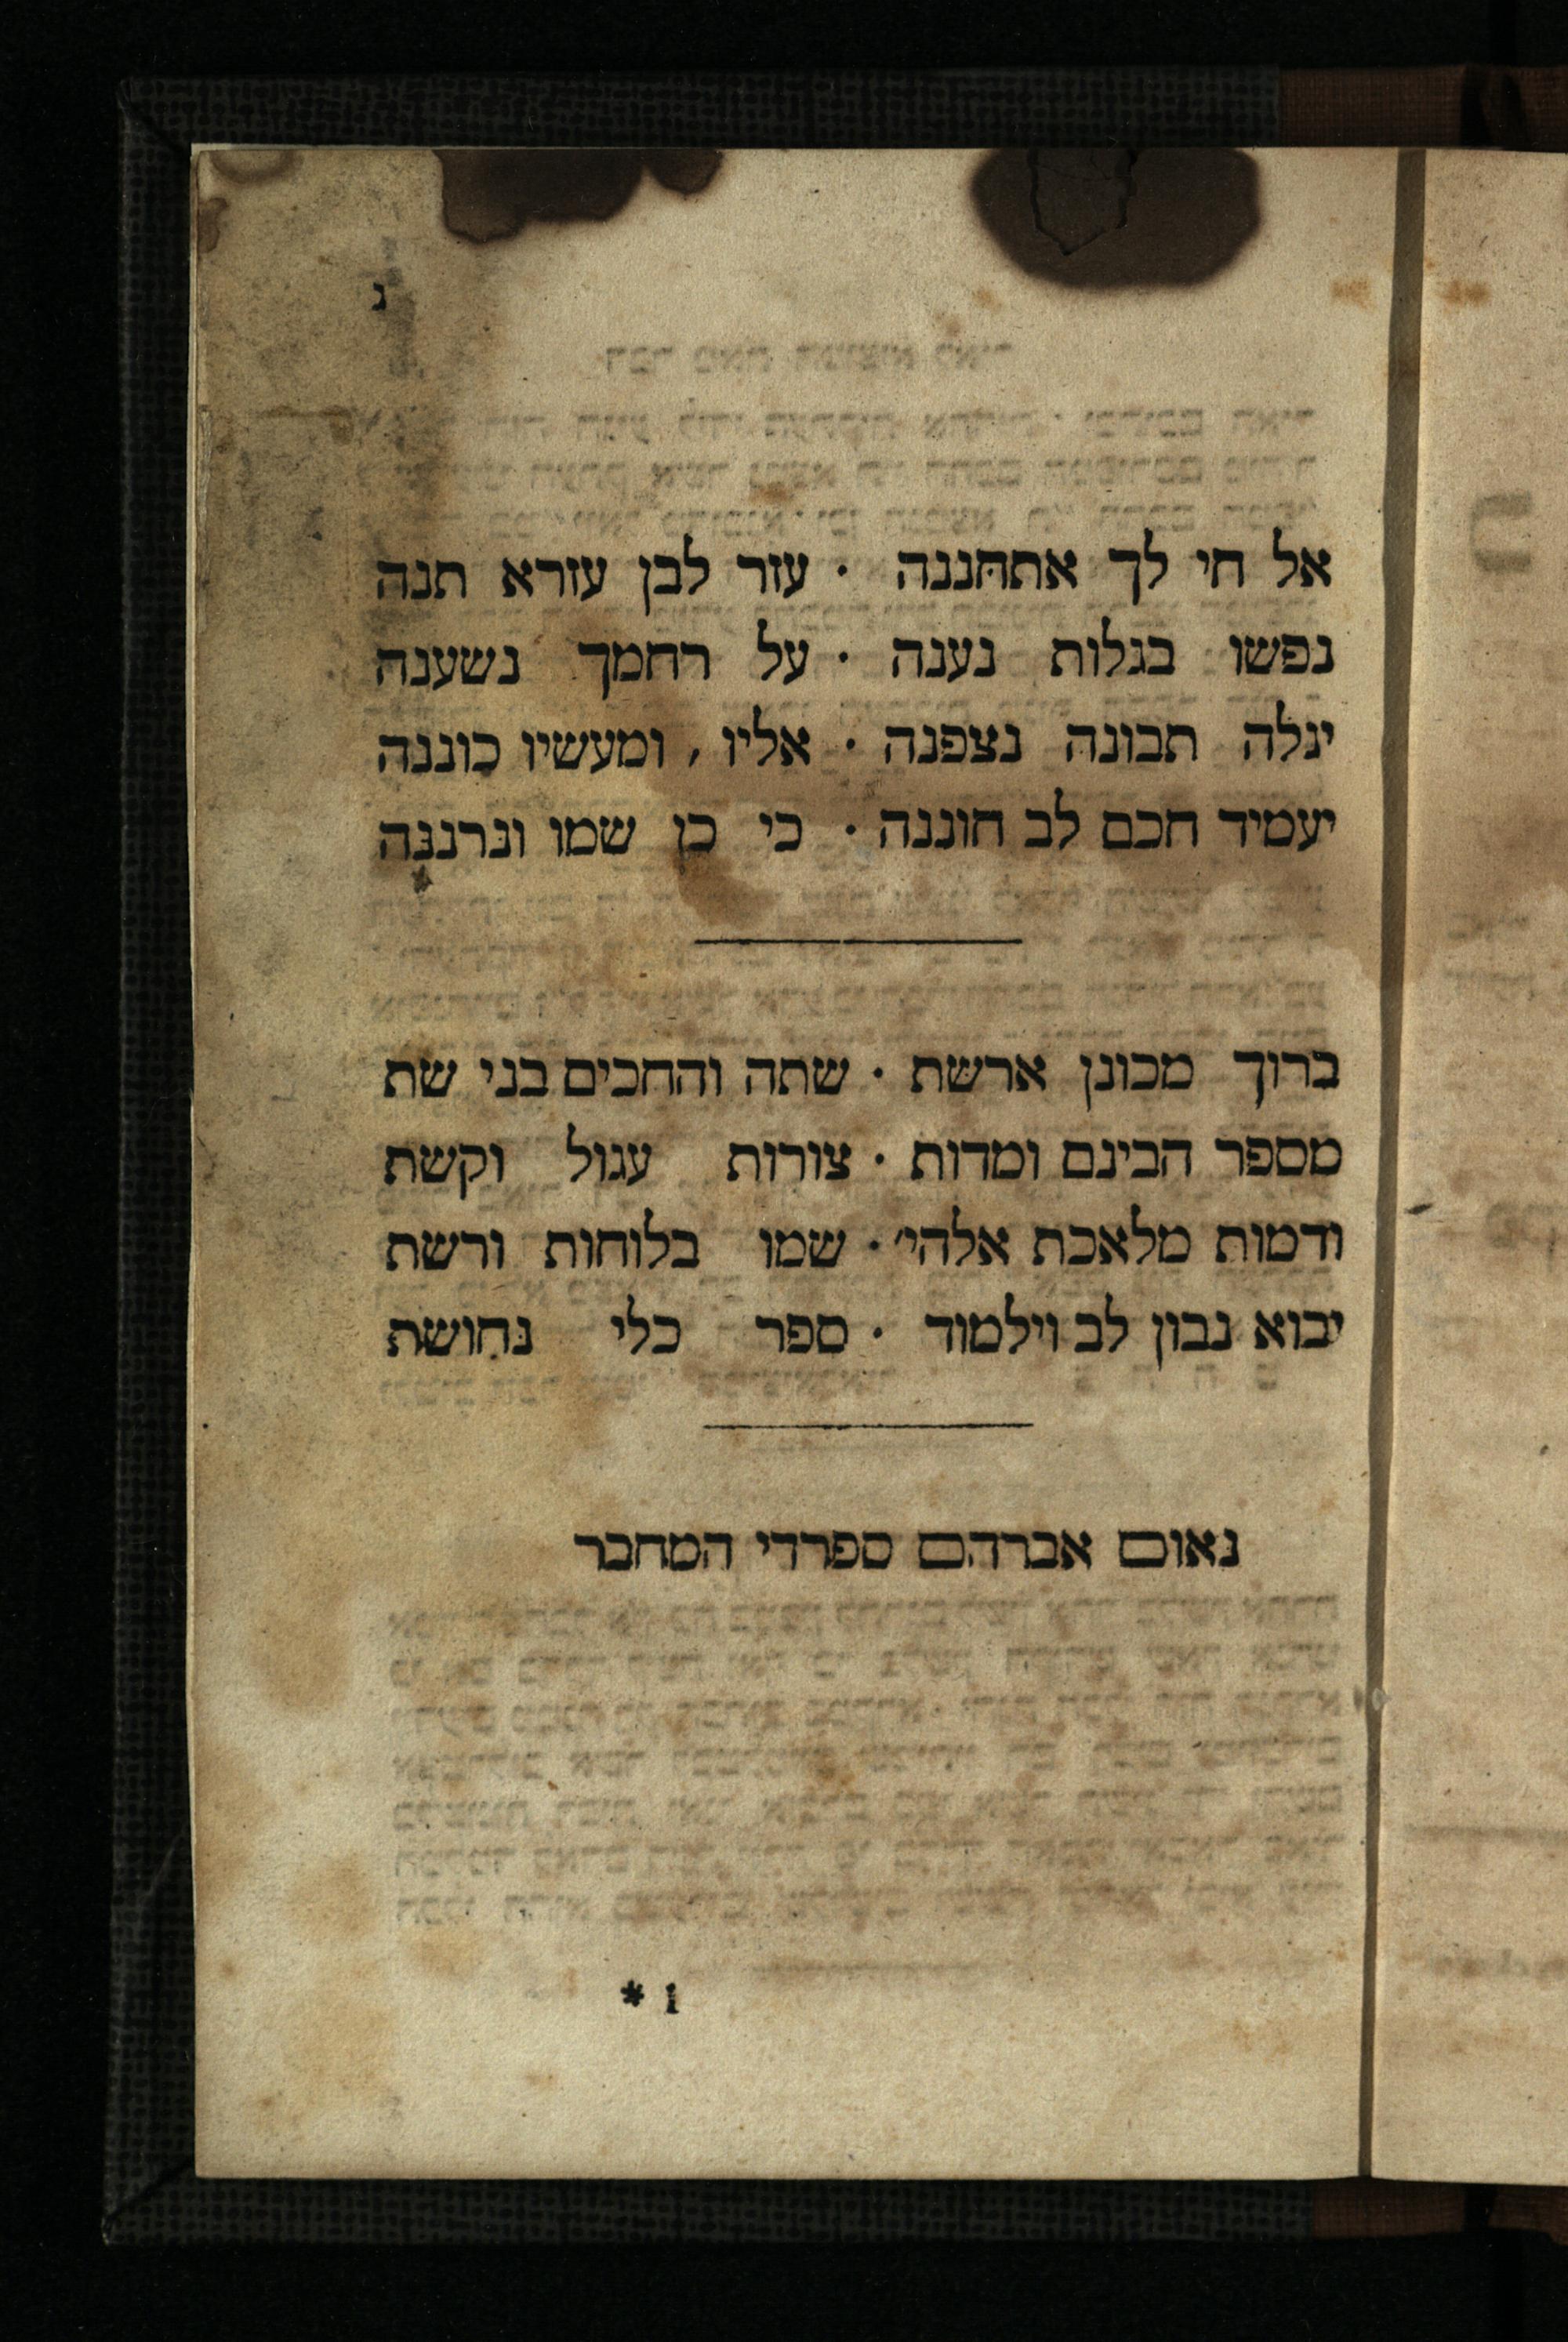 ג
אל חי לך אתחננה · עזר לבן עזרא תנה
נפשו בגלות נענה · על רחמך נשענה
יגלה תבונה נצפנה · אליו, ומעשיו כוננה
יעמיד חכם לב חוננה · כי כן שמו ונרננה
ברוך מכונן ארשת · שתה והחכים בני שת
מספר הבינם ומדות · צורות עגול וקשת
ודמות מלאכת אלהי' · שמו בלוחות ורשת
יבוא נבון לב וילמוד · ספר כלי נחושת
נאום אברהם ספרדי המחבר
* 1